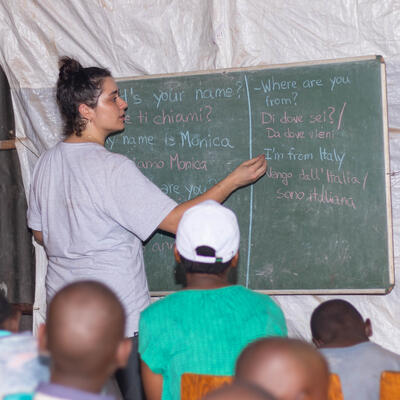 's your name?
ti chiami?
name is Monica
Monica
are you
- Where are you
from?
Di dove sei? /
Da dove vieni
I'm from Italy
Vengo dall'Italia /
sono italiana